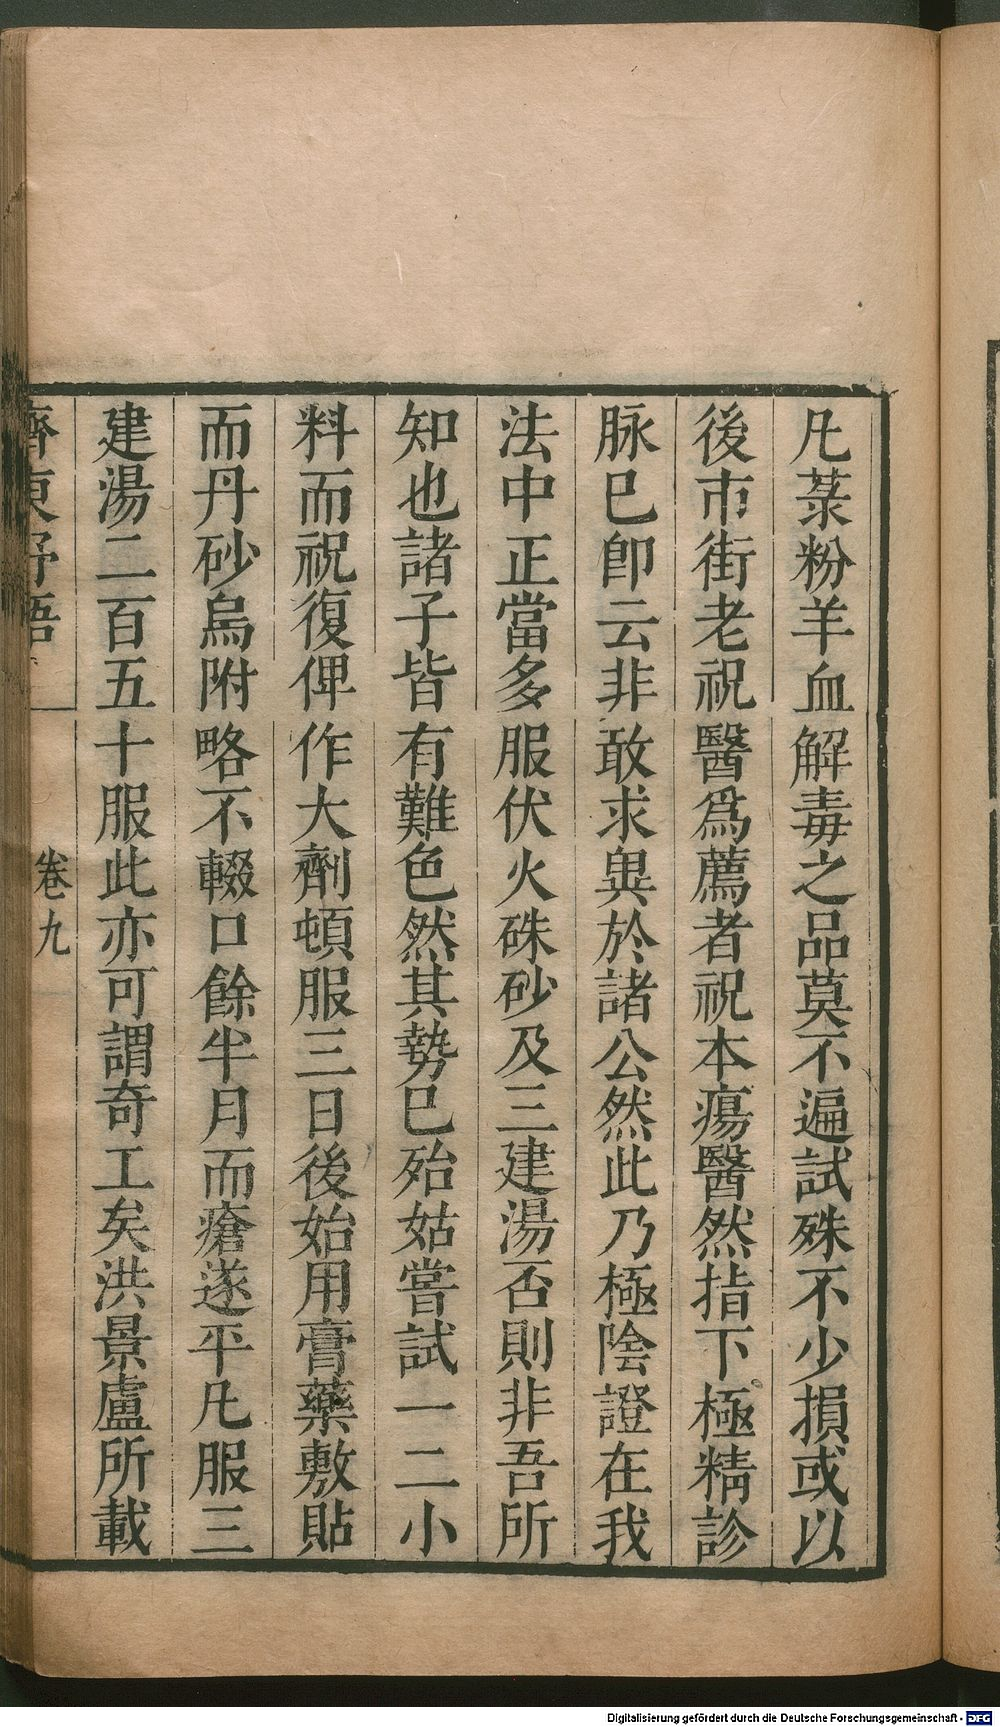 凡菉粉羊血解毒之品莫不遍試殊不少損或以
後市街老祝醫爲薦者祝本瘍醫然指下極精診
脉已卽云非敢求異於諸公然此乃極陰證在我
法中正當多服伏火硃砂及三建湯否則非吾所
知也諸子皆有難色然其勢已殆姑嘗試一二小
料而祝復俾作大劑頓服三日後始用膏藥敷貼
而丹砂烏附略不輟口餘半月而瘡遂平凡服三
建湯二百五十服此亦可謂奇工矣洪景盧所載
齊東野語 卷九
Digitalisierung gefördert durch die Deutsche Forschungsgemeinschaft - DFG